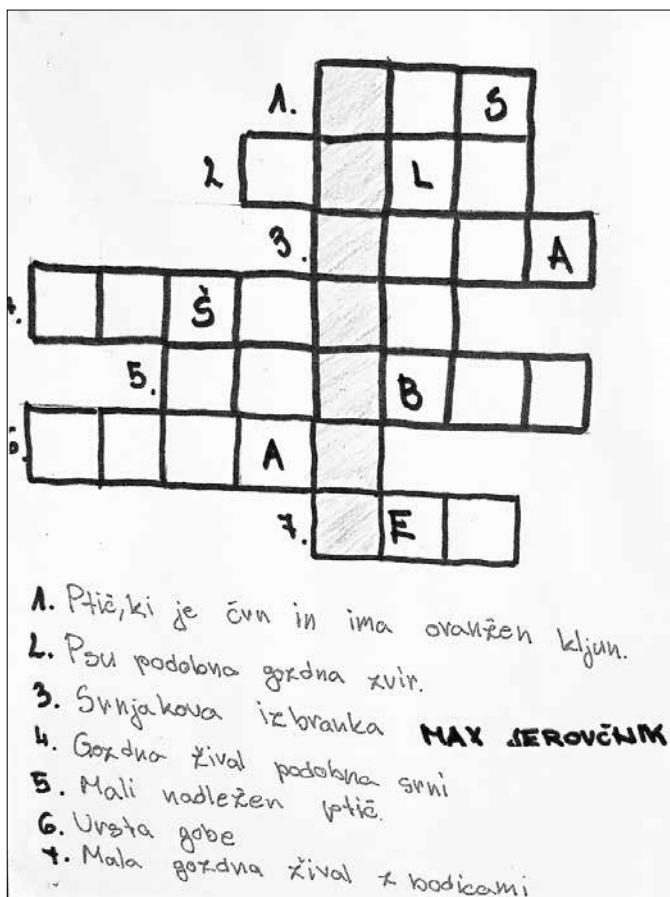 1. S
2 L
3. A
4. Š
5. B
6. A
7. E
1. Ptič, ki je črn in ima oranžen kljun.
2. Psu podobna gozdna zvir.
3. Srnjakova izbranka MAX JEROVČNIK
4. Gozdna žival podobna srni
5. Mali nadležen ptič.
6. Vrsta gobe
7. Mala gozdna žival z bodicami